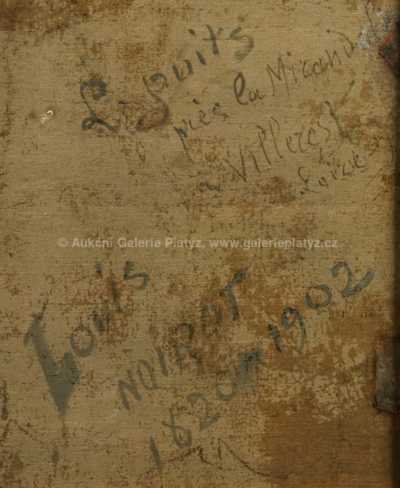 Le puits
près la Mirandole
à Villerest
Loire
© Aukční Galerie Platýz, www.galerieplatyz.cz
Louis
NOIROT
1820 1902